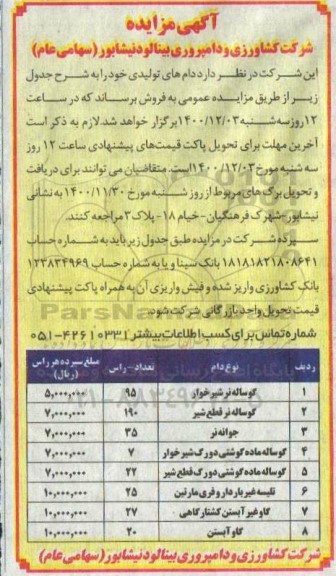 آگهی مزایده
شرکت کشاورزی و دامپروری بینالود نیشابور (سهامی عام)
این شرکت در نظر دارد دام های تولیدی خود را به شرح جدول
زیر از طریق مزایده عمومی به فروش برساند که در ساعت
۱۲ روز سه شنبه ۱۴۰۰/۱۲/۰۳ برگزار خواهد شد. لازم به ذکر است
آخرین مهلت برای تحویل پاکت قیمت های پیشنهادی ساعت ۱۲ روز
سه شنبه مورخ ۱۴۰۰/۱۲/۰۳ است. متقاضیان می توانند برای دریافت
و تحویل برگ های مربوط از روز شنبه مورخ ۱۴۰۰/۱۱/۳۰ به نشانی
نیشابور- شهرک فرهنگیان- خیام ۱۸- پلاک ۳ مراجعه کنند.
سپرده شرکت در مزایده طبق جدول زیر باید به شماره حساب
۱۸۱۸۱۸۲۱۸۰۸۶۴۱ بانک سینا و یا به شماره حساب ۱۲۳۸۳۴۹۶۹
بانک کشاورزی واریز شده و فیش واریزی آن به همراه پاکت پیشنهادی
قیمت تحویل واحد بازرگانی شرکت شود.
شماره تماس برای کسب اطلاعات بیشتر ۴۲۶۱۰۳۳۱-۰۵۱
ردیف نوع دام تعداد - راس مبلغ سپرده هر راس (ریال)
۱ گوساله نر شیرخوار ۹۵ ۵,۰۰۰,۰۰۰
۲ گوساله نر قطع شیر ۱۹۰ ۷,۰۰۰,۰۰۰
۳ جوانه نر ۳۵ ۷,۰۰۰,۰۰۰
۴ گوساله ماده گوشتی دورگ شیرخوار ۷ ۷,۰۰۰,۰۰۰
۵ گوساله ماده گوشتی دورگ قطع شیر ۲۲ ۷,۰۰۰,۰۰۰
۶ تلیسه غیرباردار و فری مارتین ۲۵ ۱۰,۰۰۰,۰۰۰
۷ گاو غیرآبستن کشتارگاهی ۲۷ ۱۰,۰۰۰,۰۰۰
۸ گاو آبستن ۲۰ ۱۰,۰۰۰,۰۰۰
شرکت کشاورزی و دامپروری بینالود نیشابور (سهامی عام)